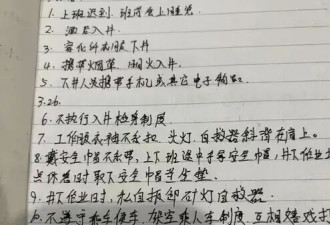 1. 上班迟到. 班前会上睡觉.
2. 酒后入井.
3. 穿化纤衣服下井
4. 携带烟草. 明火入井.
5. 下井人员携带手机或其它电子物品.
3.26.
6. 不执行入井检身制度.
7. 工作服衣袖不系扣. 头灯. 自救器斜背在肩上.
8. 戴安全帽不系带, 上下班途中手拿安全帽, 井下作业地
点休息时取下安全帽当坐垫.
9. 井下作业时, 私自拆卸矿灯自救器.
10. 不遵守乘车 架空乘人车制度. 互相嬉戏打